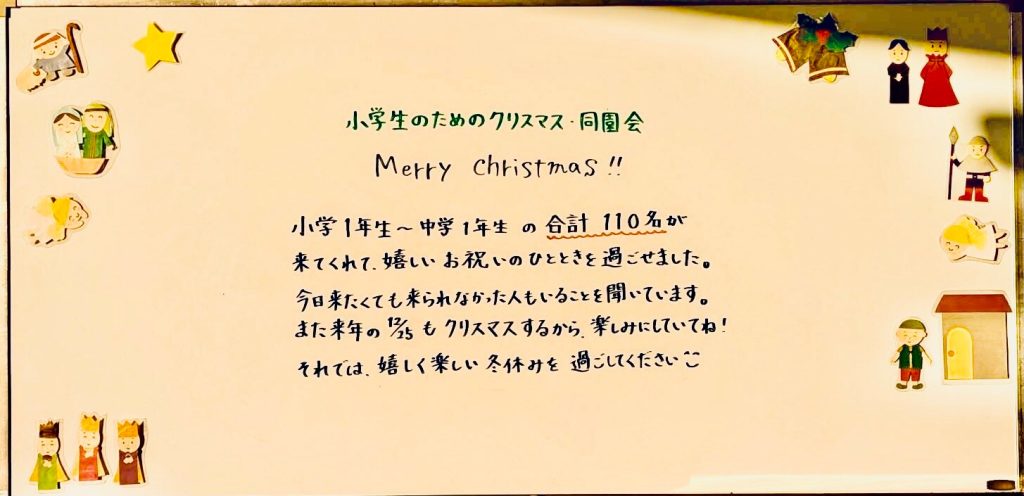 小学生のためのクリスマス・同園会
Merry Christmas!!
小学1年生～中学1年生の合計110名が
来てくれて、嬉しいお祝いのひとときを過ごせました。
今日来たくても来られなかった人もいることを聞いています。
また来年の12/25もクリスマスするから、楽しみにしていてね!
それでは、嬉しく楽しい冬休みを過ごしてください